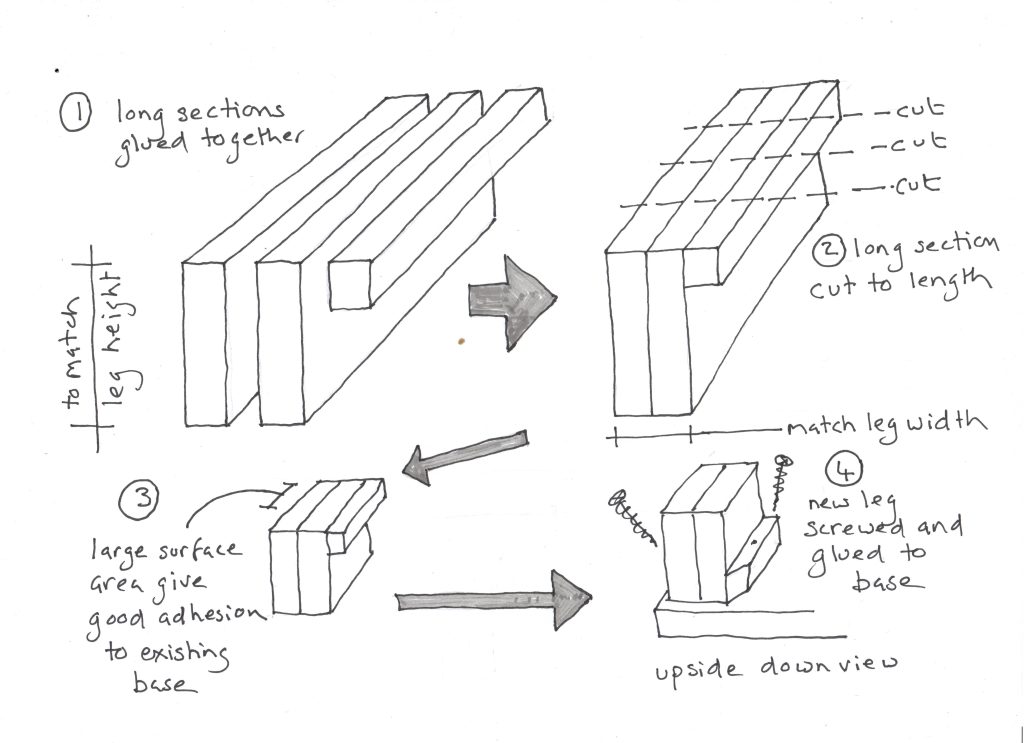 1 long sections
glued together
to match
leg height
cut
cut
cut
2 long section
cut to length
match leg width
3
large surface
area give
good adhesion
to existing
base
4
new leg
screwed and
glued to
base
upside down view